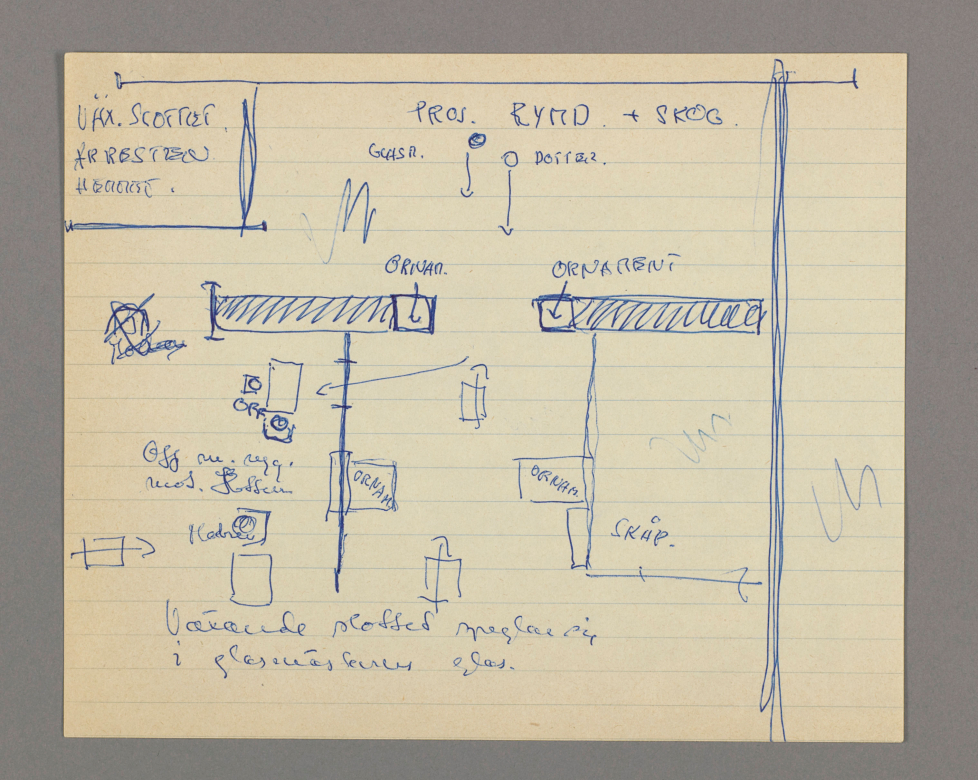 VÄX. SLOTTET.
ARRESTEN
HEMMET.
PROJ. RYMD. + SKOG.
GLASM.
DOTTER.
ORNAM.
ORNAMENT
OFF
Off m. rygg.
mot.
ORNAM.
ORNAM.
SKÅP.
Växande slottet speglar sig
i glasmästarens glas.